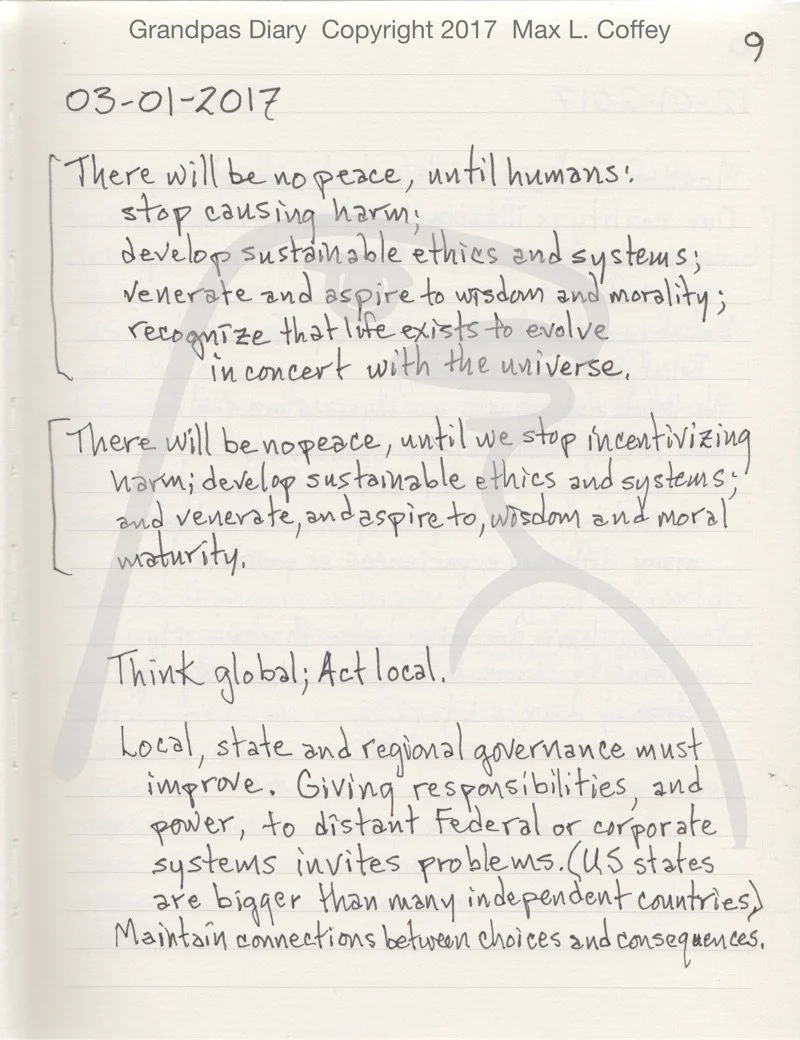 Grandpas Diary Copyright 2017 Max L. Coffey
9
03-01-2017
There will be no peace, until humans:
stop causing harm;
develop sustainable ethics and systems;
venerate and aspire to wisdom and morality;
recognize that life exists to evolve
in concert with the universe.
There will be no peace, until we stop incentivizing
harm; develop sustainable ethics and systems;
and venerate, and aspire to, wisdom and moral
maturity.
Think global; Act local.
Local, state and regional governance must
improve. Giving responsibilities, and
power, to distant Federal or corporate
systems invites problems. (US states
are bigger than many independent countries)
Maintain connections between choices and consequences.